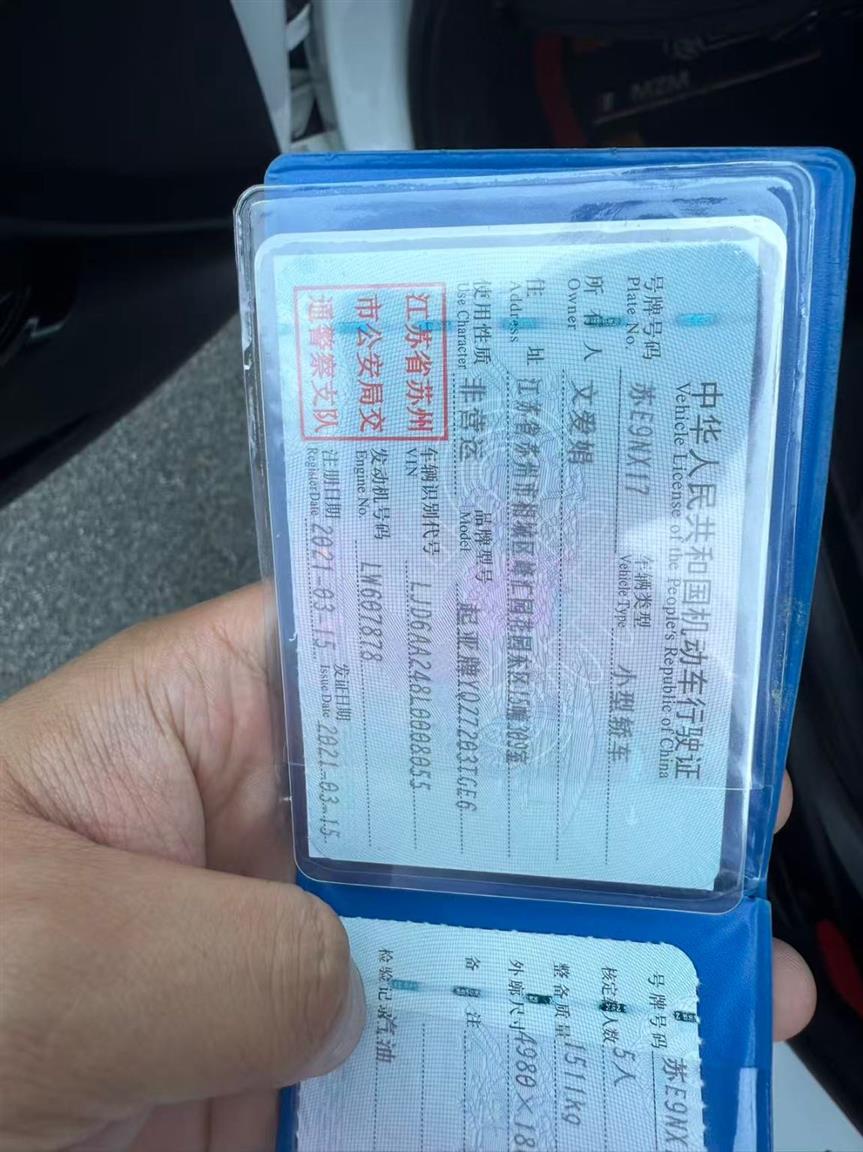 中华人民共和国机动车行驶证
Vehicle License of the People's Republic of China
号牌号码 苏E9NX17 车辆类型 小型轿车
Plate No. Vehicle Type
所有人 文爱娟
Owner
住址 江苏省苏州市相城区 汇园花园东区15幢309室
Address
使用性质 非营运 品牌型号 起亚牌YQZ7203TGE6
Use Character Model
江苏省苏州
市公安局交
通警察支队
车辆识别代号 LJD6AA248L0008055
VIN
发动机号码 LW607878
Engine No.
注册日期 2021-03-15 发证日期 2021-03-15
Register Date Issue Date
号牌号码 苏E9NX
核定 人数 5人
整备质量 1511kg
外廓尺寸 4980×18
备注
检验记录 汽油
MZM